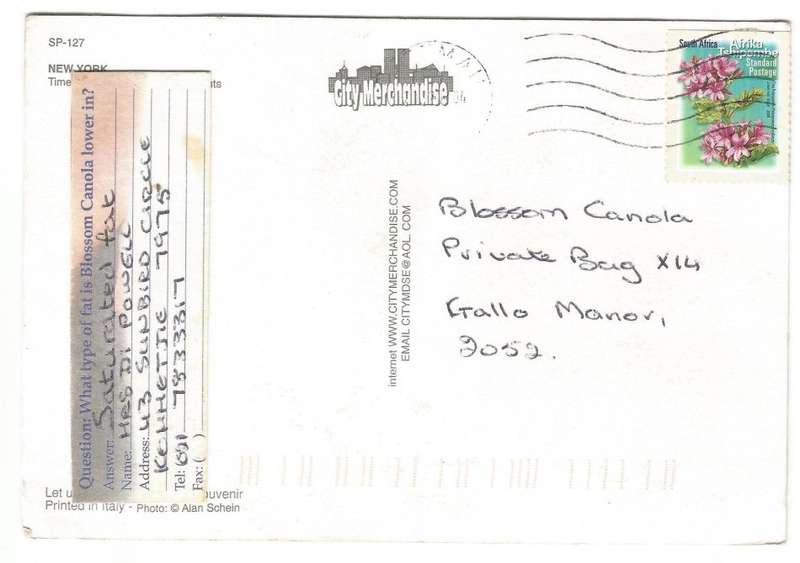 SP-127
NEW YORK
Time
ts
City Merchandise
South Africa
Afrika
Standard
Postage
Question: What type of fat is Blossom Canola lower in?
Answer: Saturated fat
Name: MRS DI POWELL
Address: 43 SUNBIRD CIRCLE
7975
Tel: (021 7833317
Fax: ( )
internet WWW.CITYMERCHANDISE.COM
EMAIL CITYMDSE@AOL.COM
Blossom Canola
Private Bag X14
Gallo Manor,
2052.
Let u
ouvenir
Printed in Italy - Photo: © Alan Schein